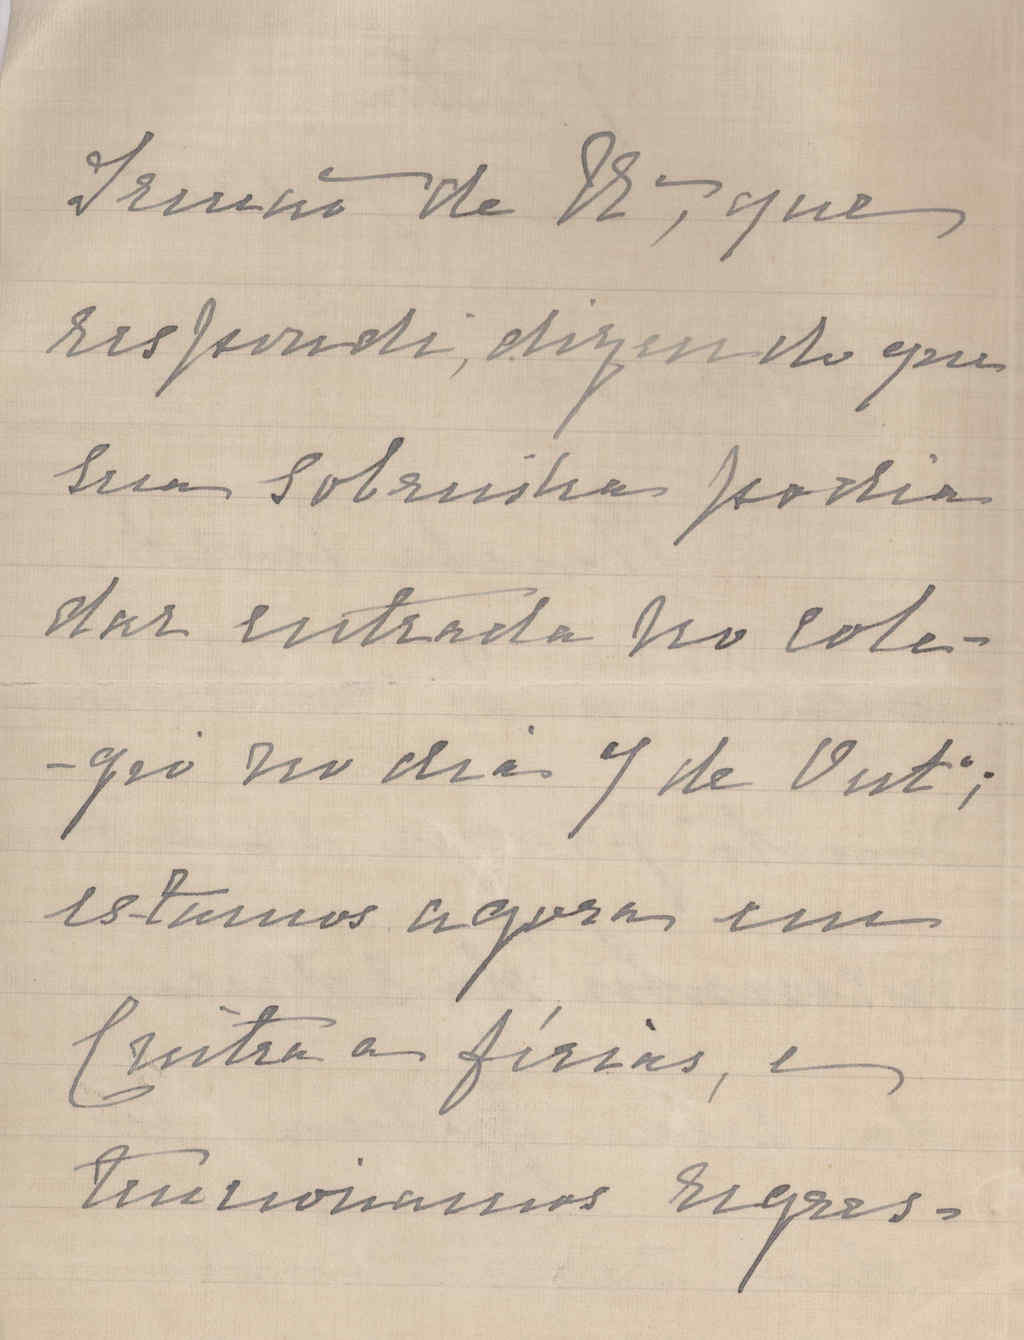 Irmão de V.ª, que
respondi, dizendo que
sua Sobrinha podia
dar entrada no cole-
-gio no dia 7 de Out.º;
estamos agora em
Cintra a férias, e
tencionamos regres-